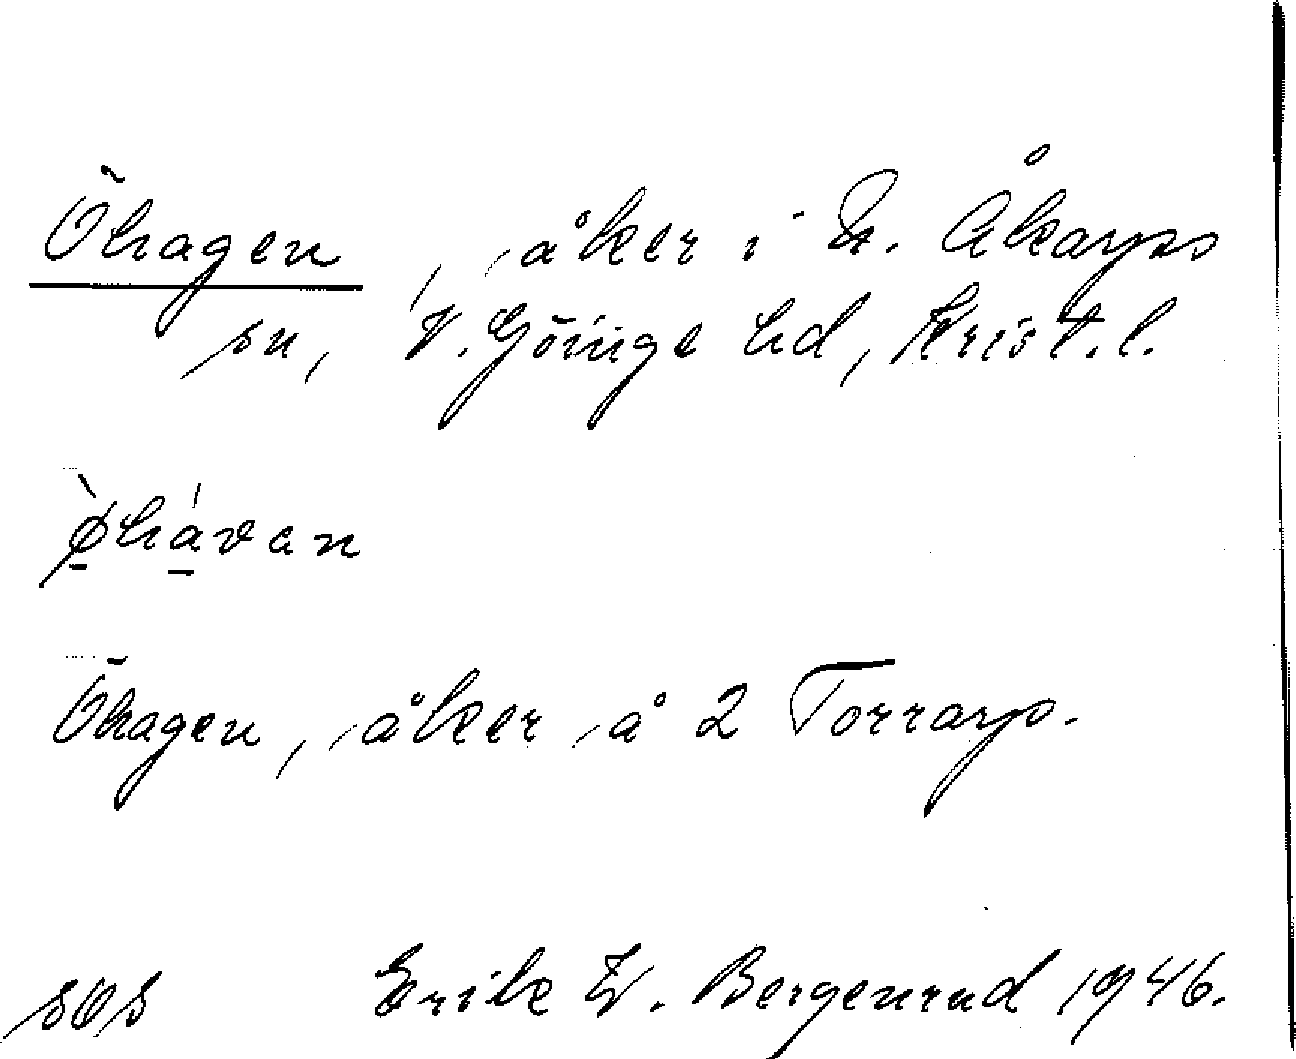 Öhagen, åker i N. Åkarps
sn, V. Göinge hd, Krist. l.
ø̀hávan
Öhagen, åker å 2 Torrarp.
sOs Erik W. Bergenrud 1946.